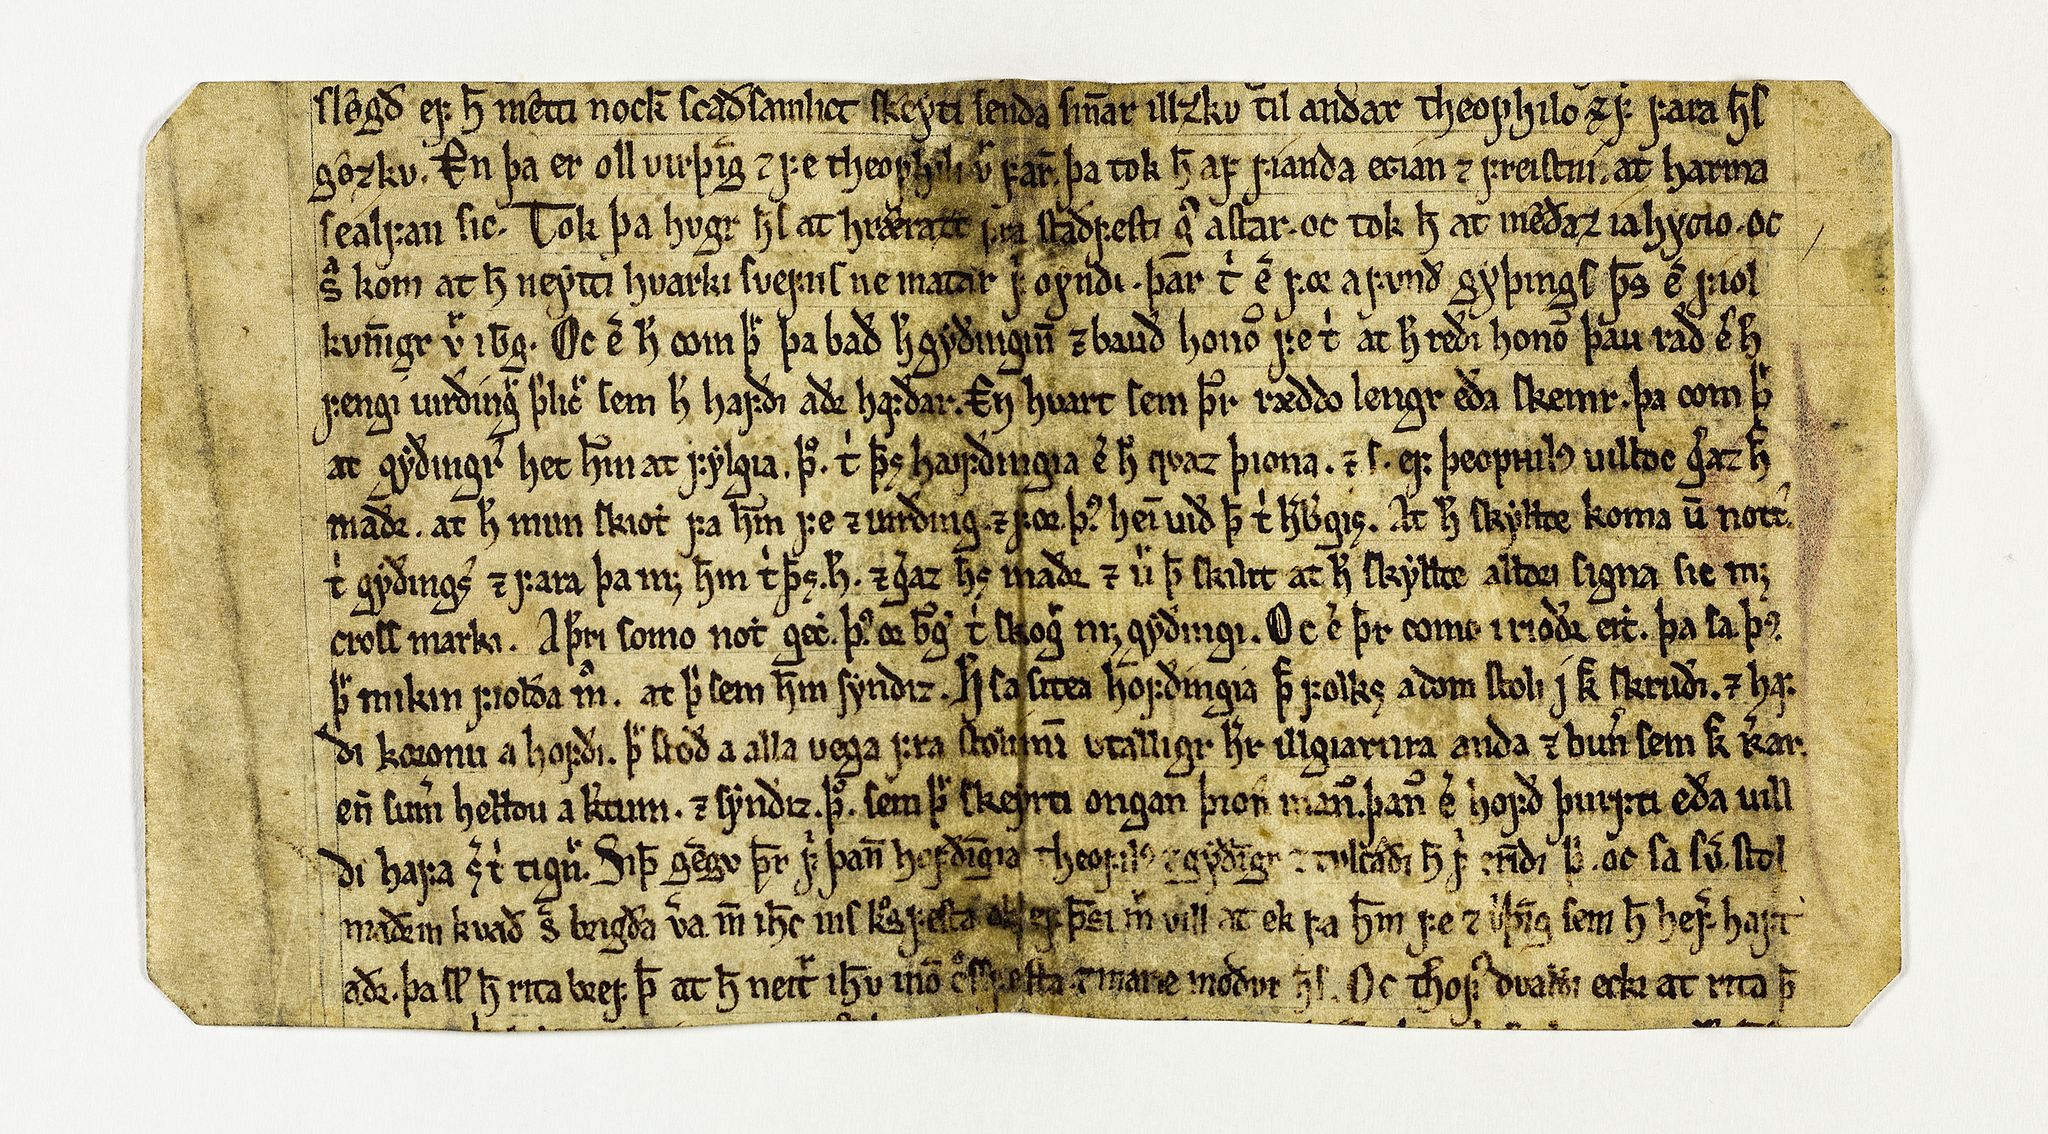 slǿgd ef h̄ mętti nock̄ scaðsamlict skeyti senda sinnar illzku til andar theophilo ⁊ f̄ fara h̄s
gǿzku. En þa er oll virþīg ⁊ fe theophili v̄ farī. þa tok h̄ af fianda ecian ⁊ freistni. at harma
sealfan sic. Tok þa hvgr h̄s at hrærazt fra staðfesti astar. oc tok h̄ at mǿðaz iahycio. oc
sͣ kom at h̄ neytti hvarki svefns ne matar f̄ oyndi. þar t̍ e̾ fœ a fund gyþings þ̄s e̾ fiol
kvn̄igr v͛ i b̄g. Oc e̾ h̄ com þ͛ þa bað h̄ gyðingin̄ ⁊ bauð honō fe t̍ at h̄ reði honō þau rað e̾ h̄
fengi uirðing þ̾lic̾ sem h̄ hafði aðꝛ hafðar. En hvart sem þ̄r ræddo lengr eða skemr. þa com þ͛
at gyðingr̾ het h̄m at fylgia. þͦ. t̍ þ̄s haifðingia e̾ h̄ qvaz þiona. ⁊ s. ef þeophilꝰ uilltoc h̄
maðꝛ. at h̄ mun skiot fa h̄m fe ⁊ uirðing ⁊ fœ þͦ heī við þ̄ t̍ h̄b̄gis. At h̄ skyllte koma ū nott
t̍ gyðings̾ ⁊ fara þa mꝫ h̄m t̍ þ̄s. h̄. ⁊ h̄s maðꝛ ⁊ v̾ þ̄ skilit at h̄ skyllte alldri signa sic mꝫ
cross marki. A þ̄ri somo not gec. þͦ oꝛ b̄g t̍ skog̾ mꝫ gyðingi. Oc e̾ þ̄r como i rioðꝛ eit. þa sa þͦ
þ͛ mikin fiolða m̄. at þ̾ sem h̄m syndiz. H̄ sa sitea hofðingia þ̄ folks a dom stoli j k̄ skruði. ⁊ haf
ði koronu a hofði. þ͛ stoð a alla vega fra stolinū vtalligr h̄r illgiarnra anda ⁊ bun̾ sem k̄ kar.
en̄ sum̾ helldu a k̾tum. ⁊ syndiz. þͦ. sem þ͛ skeyrti ongan þion man̄. þan̄ e̾ hofð þurfti eða uill
di hafa s̾ t̍ tign̾. Siþ̄ gēgv þ̄r f̾ þan̄ hofðīgia theofilꝰ ⁊ gyðīgr ⁊ tvlcaði h̄ f̾ erīdi þ̄. oc sa s̾ stol
maðrin kvað sͣ brigða v̾a m̄ ih̄c ins k̾osfesta ok ef þ̄si m̾ vill at ek fa h̄m fe ⁊ v̾þīg sem h̄ hef̾ haft
aðꝛ. þa sl̄ h̄ rita bref þ̄ at h̄ neit͛ ih̄v inō c̾ossfesta ⁊ marie moður h̄s. Oc thofꝰ dvaldi ecki at rita þ̄